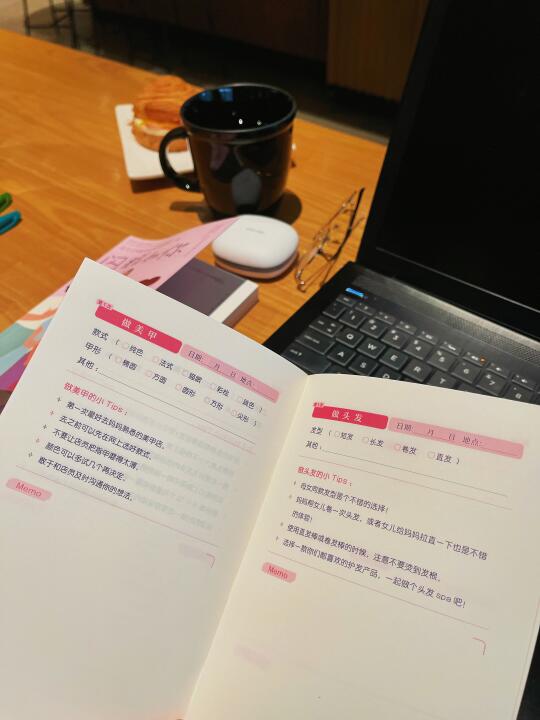 做美甲
日期:__月__日 地点:____
款式 ( 纯色 法式 猫眼 彩绘 跳色 )
甲形 ( 椭圆 方圆 圆形 方形 尖形 )
其他:
做美甲的小 Tips:
第一次最好去妈妈熟悉的美甲店。
去之前可以先在网上选好款式。
不要让店员把指甲磨得太薄。
颜色可以多试几个再决定。
敢于和店员及时沟通你的想法。
Memo
做头发
日期:__月__日 地点:____
发型 ( 短发 长发 卷发 直发 )
其他:
做头发的小 Tips:
母女同款发型是个不错的选择!
妈妈帮女儿卷一次头发,或者女儿给妈妈拉直一下也是不错
的体验!
使用直发棒或卷发棒的时候,注意不要烫到发根。
选择一款你们都喜欢的护发产品,一起做个头发 spa 吧!
Memo